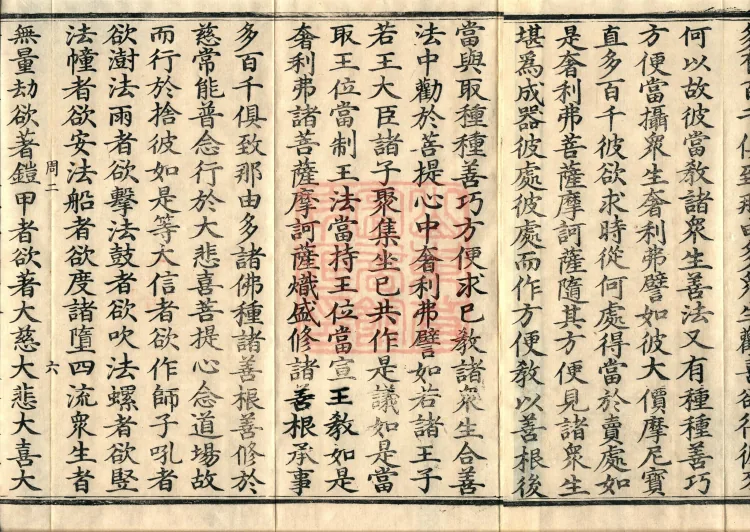 何以故彼當教諸衆生善法又有種種善巧
方便當攝衆生奢利弗譬如彼大價摩尼寶
直多百千彼欲求時從何處得當於賣處如
是奢利弗菩薩摩訶薩隨其方便見諸衆生
堪為成器彼處彼處而作方便教以善根後
當與取種種善巧方便求已教諸衆生合善
法中勸於菩提心中奢利弗譬如若諸王子
若王大臣諸子聚集坐已共作是議如是當
取王位當制王法當持王位當宣王教如是
奢利弗諸菩薩摩訶薩熾盛修諸善根承事
多百千俱致那由多諸佛種諸善根善修於
慈常能普念行於大悲喜菩提心念道場故
而行於捨彼如是等大信者欲作師子吼者
欲澍法雨者欲擊法鼓者欲吹法螺者欲竪
法幢者欲安法船者欲度諸墮四流衆生者
周二 六
無量劫欲著鎧甲者欲著大慈大悲大喜大